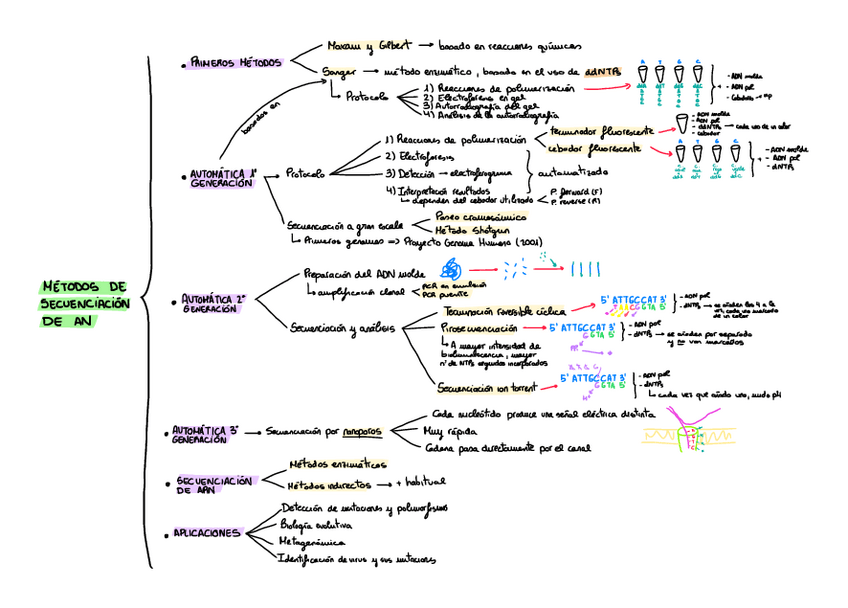 MÉTODOS DE
SECUENCIACIÓN
DE AN
• PRIMEROS MÉTODOS
Maxam y Gilbert → basado en reacciones químicas
Sanger → método enzimático, basado en el uso de ddNTPs
Protocolo
1) Reacciones de polimerización
2) Electroforesis en gel
3) Autorradiografía del gel
4) Análisis de la autorradiografía
A T G C
- ADN molde
- ADN pol
- Cebador
basados en
• AUTOMÁTICA 1ª
GENERACIÓN
Protocolo
1) Reacciones de polimerización
terminador fluorescente
- ADN molde
- ADN pol
- ddNTPs → cada uno de un color
- cebador
cebador fluorescente
A T G C
- ADN molde
- ADN pol
- dNTPs
2) Electroforesis
3) Detección → electroferograma
4) Interpretación resultados
automatizado
dependen del cebador utilizado
P. forward (F)
P. reverse (R)
Secuenciación a gran escala
Paseo cromosómico
Método Shotgun
Primeros genomas => Proyecto Genoma Humano (2001)
• AUTOMÁTICA 2ª
GENERACIÓN
Preparación del ADN molde
amplificación clonal
PCR en emulsión
PCR puente
Secuenciación y análisis
Terminación reversible cíclica
5' ATTGCCAT 3'
GGTA 5'
- ADN pol
- dNTPs → se añaden los 4 a la
vez, cada uno marcado
de un color
Pirosecuenciación
5' ATTGCCAT 3'
GGTA 5'
- ADN pol
- dNTPs → se añaden por separado
y no van marcados
A mayor intensidad de
bioluminiscencia, mayor
nº de NTPs seguidos incorporados
PPi
Secuenciación ion torrent
5' ATTGCCAT 3'
GGTA 5'
H+
- ADN pol
- dNTPs
cada vez que añado uno, mido pH
• AUTOMÁTICA 3ª
GENERACIÓN
Secuenciación por nanoporos
Cada nucleótido produce una señal eléctrica distinta
Muy rápida
Cadena pasa directamente por el canal
• SECUENCIACIÓN
DE ARN
Métodos enzimáticos
Métodos indirectos → + habitual
• APLICACIONES
Detección de mutaciones y polimorfismos
Biología evolutiva
Metagenómica
Identificación de virus y sus mutaciones